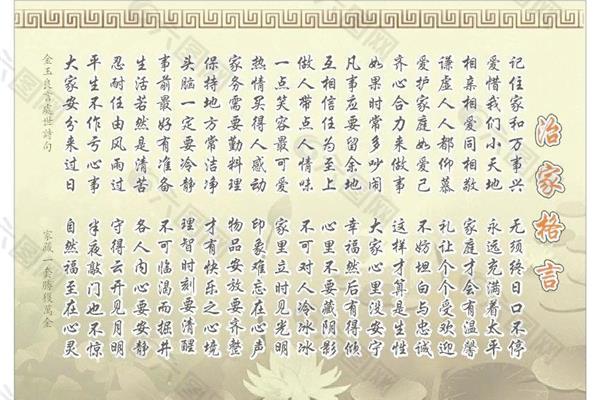 治家格言
记住家和万事兴
无须终日口不停
爱惜我们小天地
永远充满着太平
相亲相爱同相敬
家庭才会有温馨
谦虚人人都仰慕
礼让个个受欢迎
爱护家庭如爱己
不妨坦白与忠诚
齐心合力来做事
这样才算是生性
如果时常多吵闹
大家心里没安宁
凡事应要留余地
幸福然后有得倾
互相信任为至上
心里不要藏阴影
做人带点人情味
不可对人冷冰冰
一点笑容最可爱
家里立时见光明
热情买得人感动
印象难忘在心声
家务需要勤料理
物品安放要齐整
保持地方常洁净
才有快乐之心境
头脑一定要冷静
理智时刻要清醒
事前最好有准备
不可临渴而掘井
生活若然是清苦
各人内心要安静
忍耐任由风雨过
守得云开见月明
平生不作亏心事
半夜敲门也不惊
大家安分来过日
自然福至在心灵
金玉良言處世詩句
家藏一套勝獲萬金